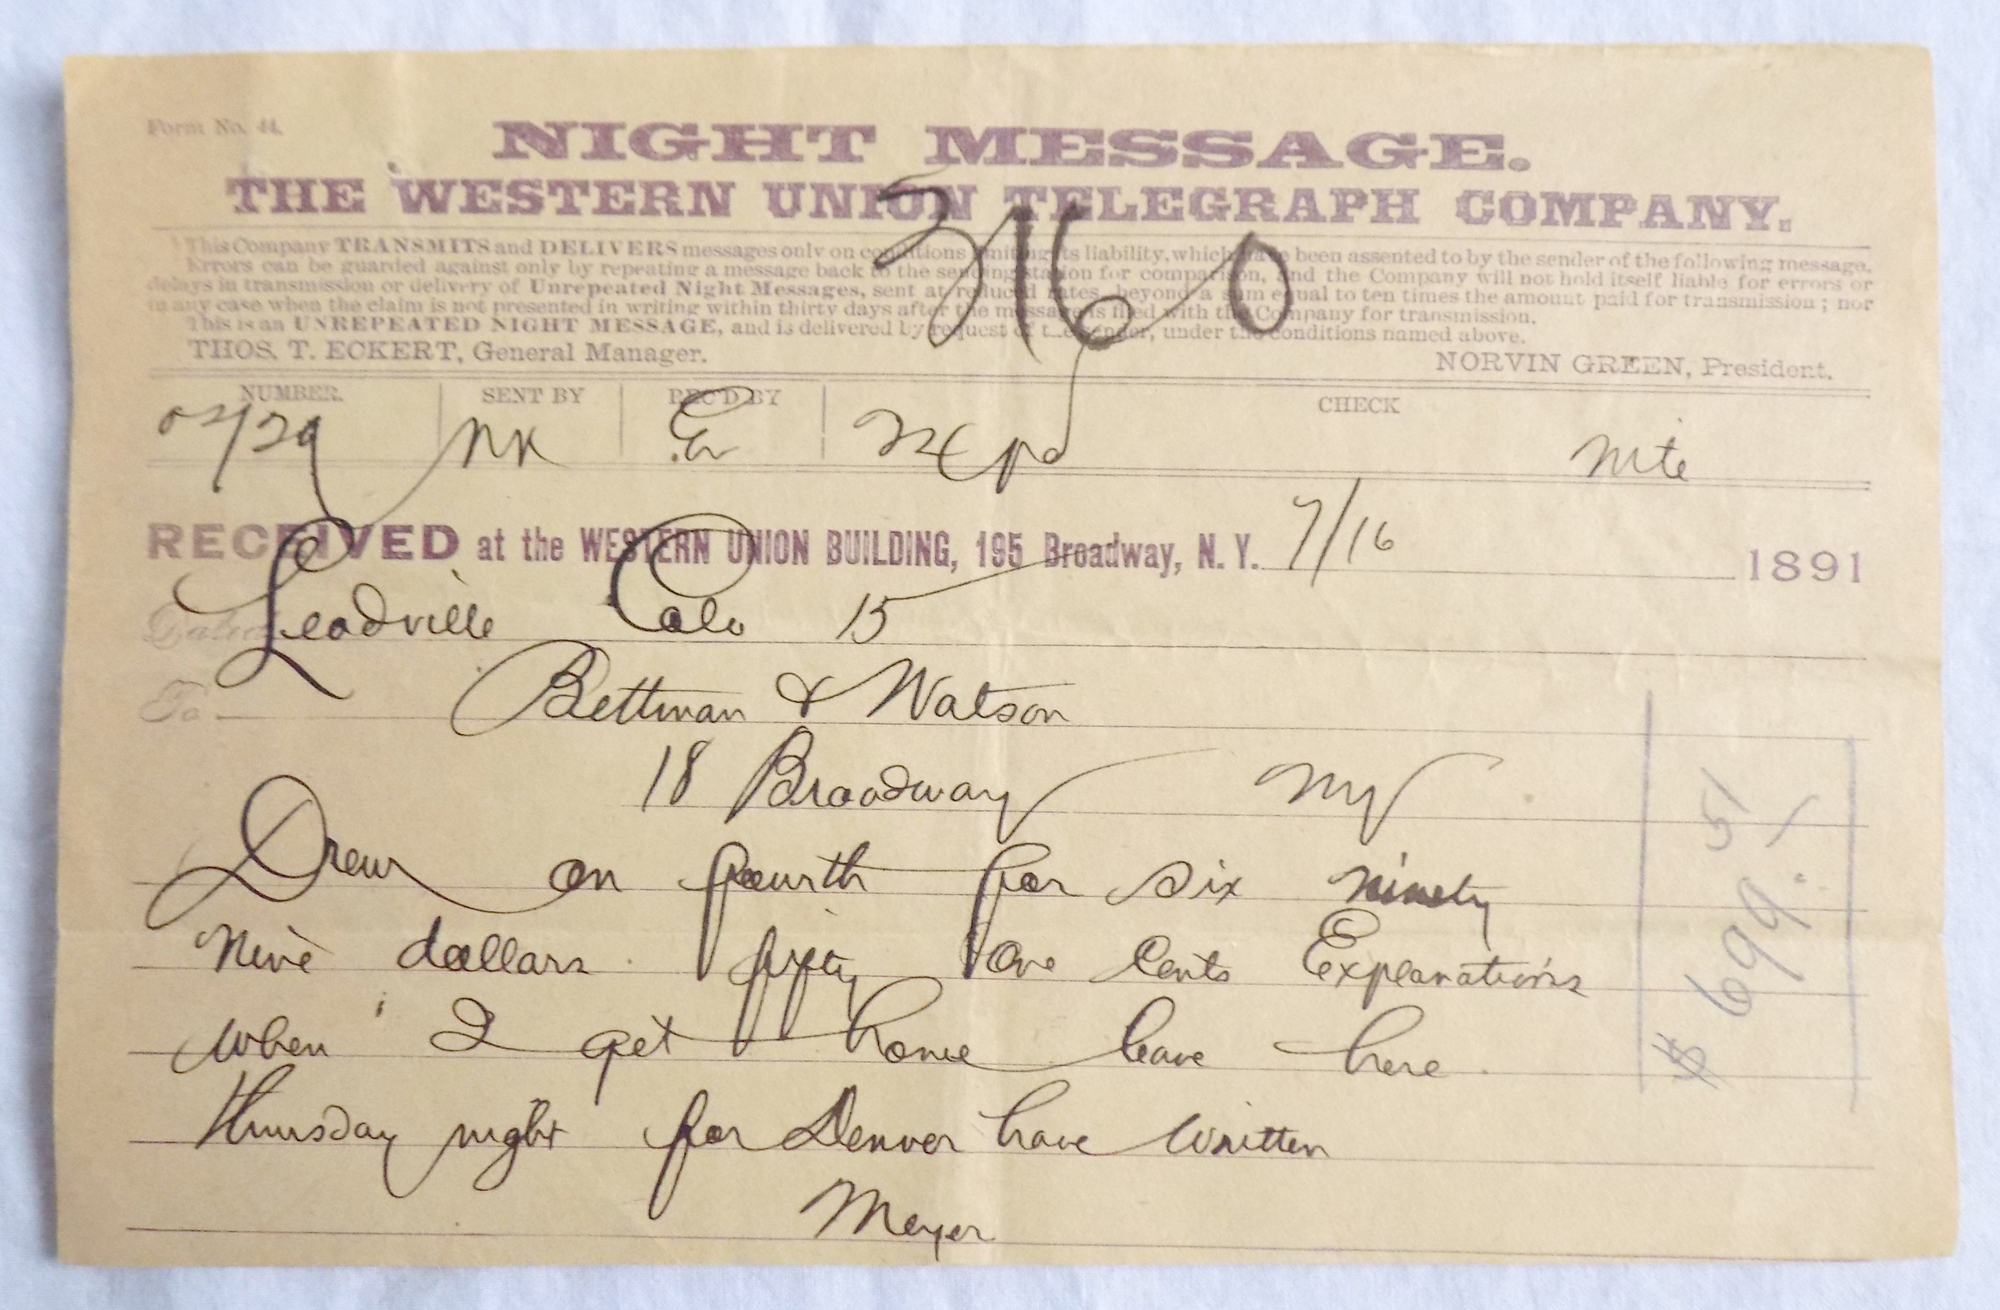 Form No. 44.
NIGHT MESSAGE.
THE WESTERN UNION TELEGRAPH COMPANY.
This Company TRANSMITS and DELIVERS messages only on conditions limiting its liability, which have been assented to by the sender of the following message.
Errors can be guarded against only by repeating a message back to the sending station for comparison, and the Company will not hold itself liable for errors or
delays in transmission or delivery of Unrepeated Night Messages, sent at reduced rates, beyond a sum equal to ten times the amount paid for transmission; nor
in any case when the claim is not presented in writing within thirty days after the message is filed with the Company for transmission.
This is an UNREPEATED NIGHT MESSAGE, and is delivered by request of the sender, under the conditions named above.
THOS. T. ECKERT, General Manager. NORVIN GREEN, President.
3160
NUMBER. SENT BY REC'D BY CHECK
NK 24 pd Nite
RECEIVED at the WESTERN UNION BUILDING, 195 Broadway, N. Y. 7/16 1891
Dated Leadville Colo 15
To Bettman & Watson
18 Broadway NY
Drew on fourth for six ninety
nine dollars fifty one cents Explanations
when I get home leave here
thursday night for Denver have written
Meyer
$ 699.51